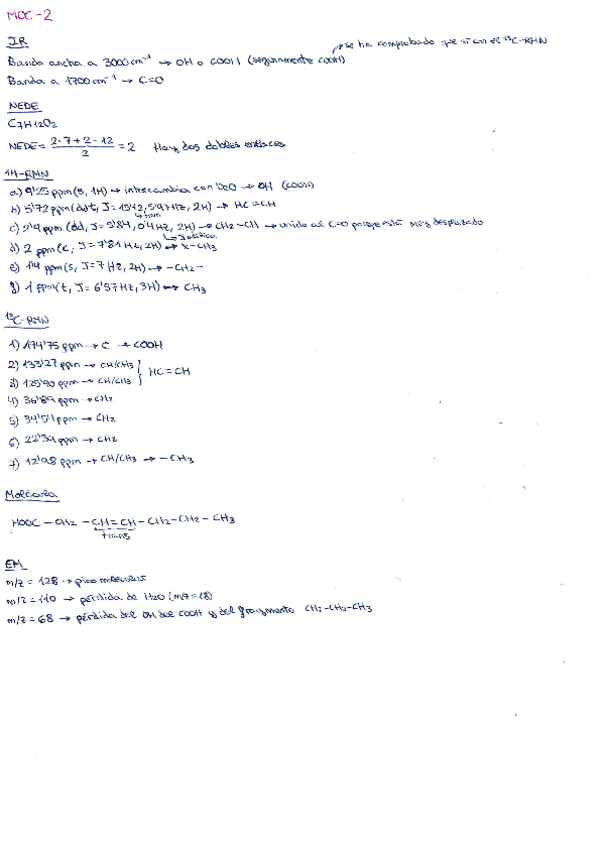 MOC-2
IR
se ha comprobado que sí en el ¹³C-RMN
Banda ancha a 3000 cm⁻¹ → OH o COOH (seguramente COOH)
Banda a 1700 cm⁻¹ → C=O
NEDE
C₇H₁₂O₂
NEDE = (2·7+2-12)/2 = 2 Hay dos dobles enlaces
¹H-RMN
a) 9'25 ppm (s, 1H) → intercambia con D₂O → OH (COOH)
b) 5'72 ppm (ddt, J = 15'12, 5'97 Hz, 2H) → HC=CH
↳ trans
c) 2'9 ppm (dd, J = 5'84, 0'4 Hz, 2H) → CH₂-CH → unido al C=O porque está muy desplazado
↳ J alílica
d) 2 ppm (c, J = 7'81 Hz, 2H) → x-CH₃
e) 1'4 ppm (s, J = 7 Hz, 2H) → -CH₂-
g) 1 ppm (t, J = 6'57 Hz, 3H) → CH₃
¹³C-RMN
1) 174'75 ppm → C → COOH
2) 133'27 ppm → CH/CH₃
3) 125'90 ppm → CH/CH₃ } HC=CH
4) 36'89 ppm → CH₂
5) 34'51 ppm → CH₂
6) 22'39 ppm → CH₂
7) 12'98 ppm → CH/CH₃ → -CH₃
Molécula
HOOC - CH₂ - CH=CH - CH₂ - CH₂ - CH₃
trans
EM
m/z = 128 → pico molecular
m/z = 110 → pérdida de H₂O (m/z = 18)
m/z = 68 → pérdida del OH del COOH y del fragmento CH₂-CH₂-CH₃